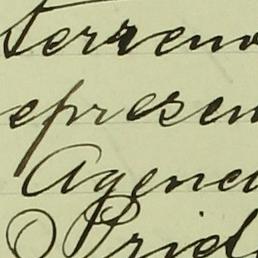 terreno
epresen
Agenci
Prid